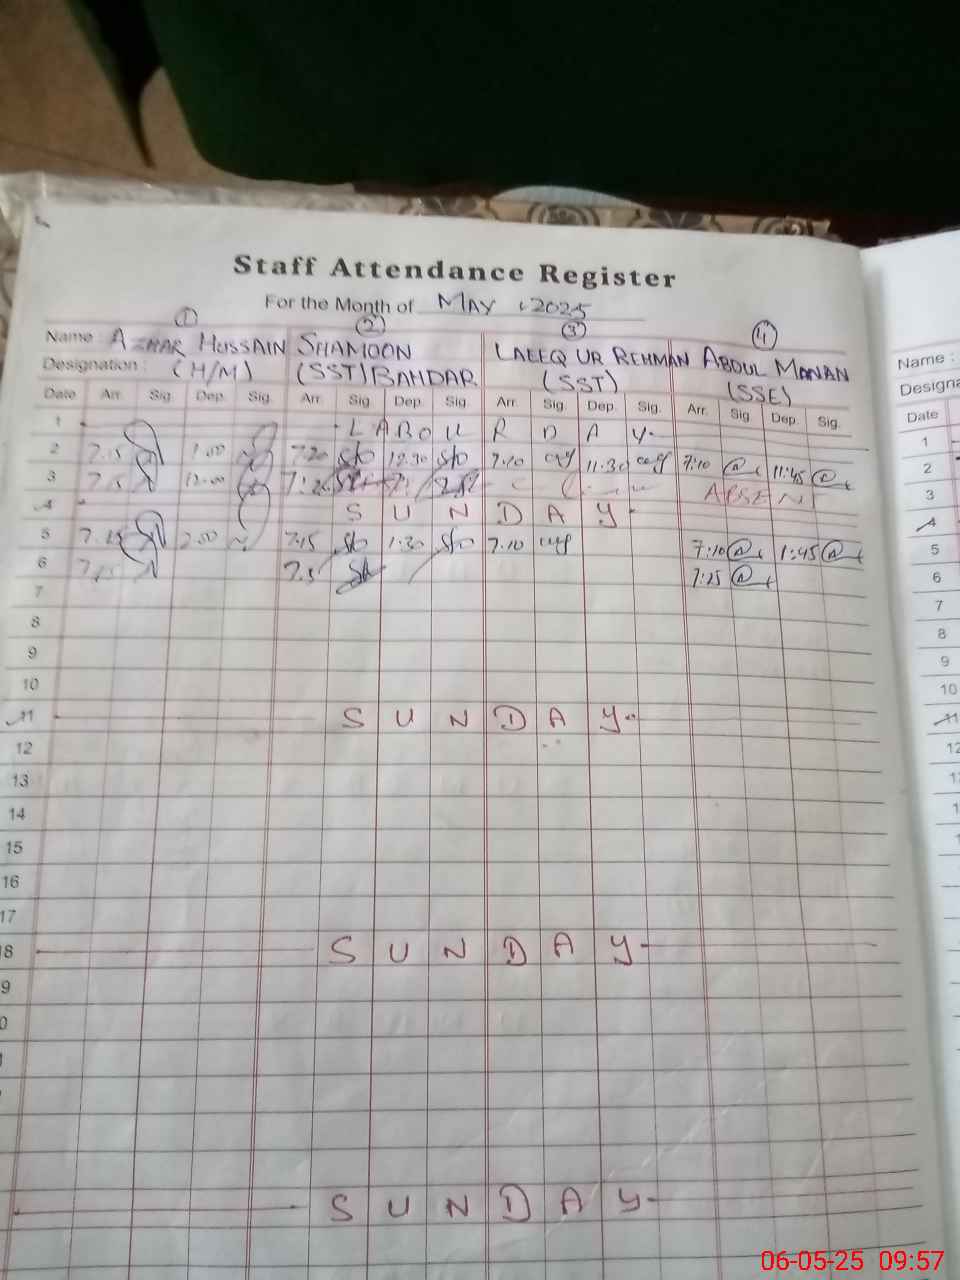 Staff Attendance Register
For the Month of MAY 2025
1 2 3 4
Name : AZHAR HUSSAIN SHAMOON LAEEQ UR REHMAN ABDUL MANAN Name :
Designation : (H/M) (SST) BAHDAR (SST) (SSE) Designa
Date Arr. Sig Dep. Sig. Arr. Sig. Dep. Sig. Arr. Sig. Dep. Sig. Arr. Sig Dep. Sig. Date
1 LABOUR DAY 1
2 7.15 1.00 7.20 12.30 7.10 11:30 7:10 11:45 2
3 7.15 12.00 ABSENT 3
4 SUNDAY 4
5 7.15 2.00 7.15 1:30 7.10 7:10 1:45 5
6 7.15 7:25 6
7 7
8 8
9 9
10 10
11 SUNDAY 11
12 12
13
14
15
16
17
8 SUNDAY
9
0
SUNDAY
06-05-25 09:57